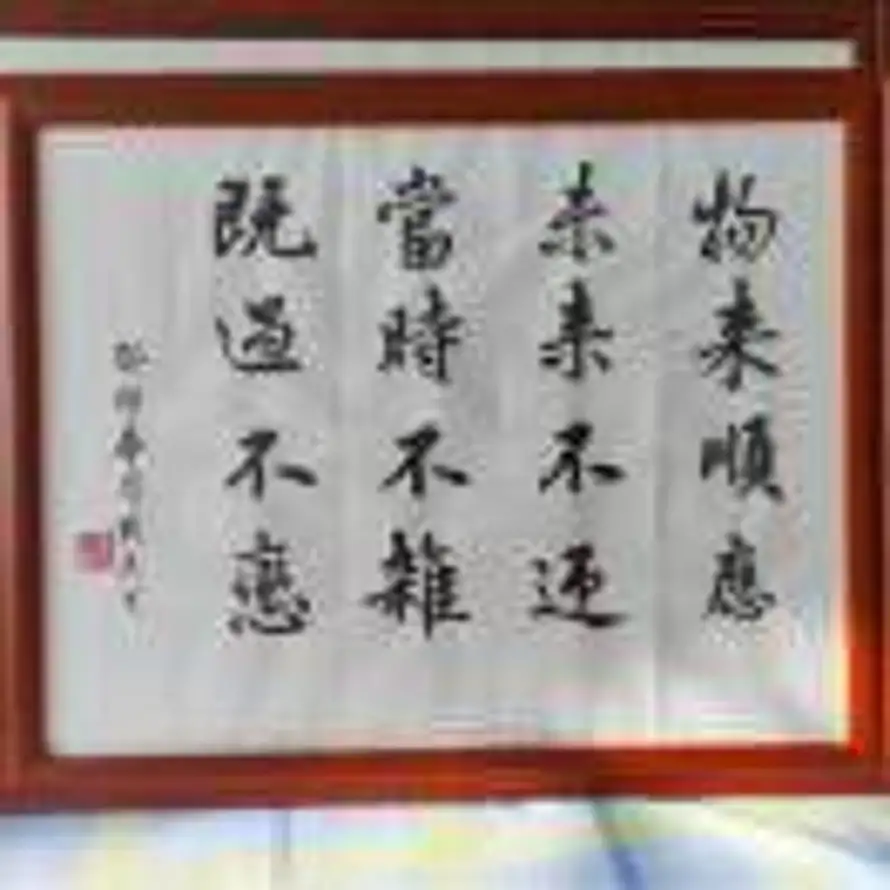 物来順應
未来不迎
當時不雜
既過不戀